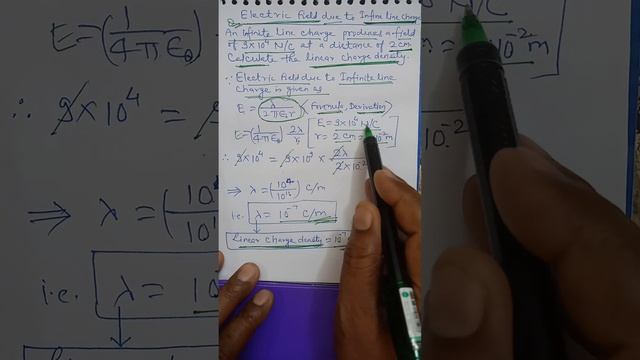 Electric Field due to Infine line charge
Q. An Infinite line charge produces a field
of 9×10⁴ N/C at a distance of 2 cm
Calculate the linear charge density.
∵ Electric Field due to Infinite line
charge is given as
E = λ/2πε₀r (Formula, Derivation)
E = (1/4πε₀) 2λ/r [E = 9×10⁴ N/C
r = 2 cm = 10⁻² m]
∴ 9×10⁴ = 9×10⁹ × 2λ/2×10⁻²
⇒ λ = (10⁴/10¹¹) C/m
i.e. λ = 10⁻⁷ C/m
Linear Charge density = 10⁻⁷